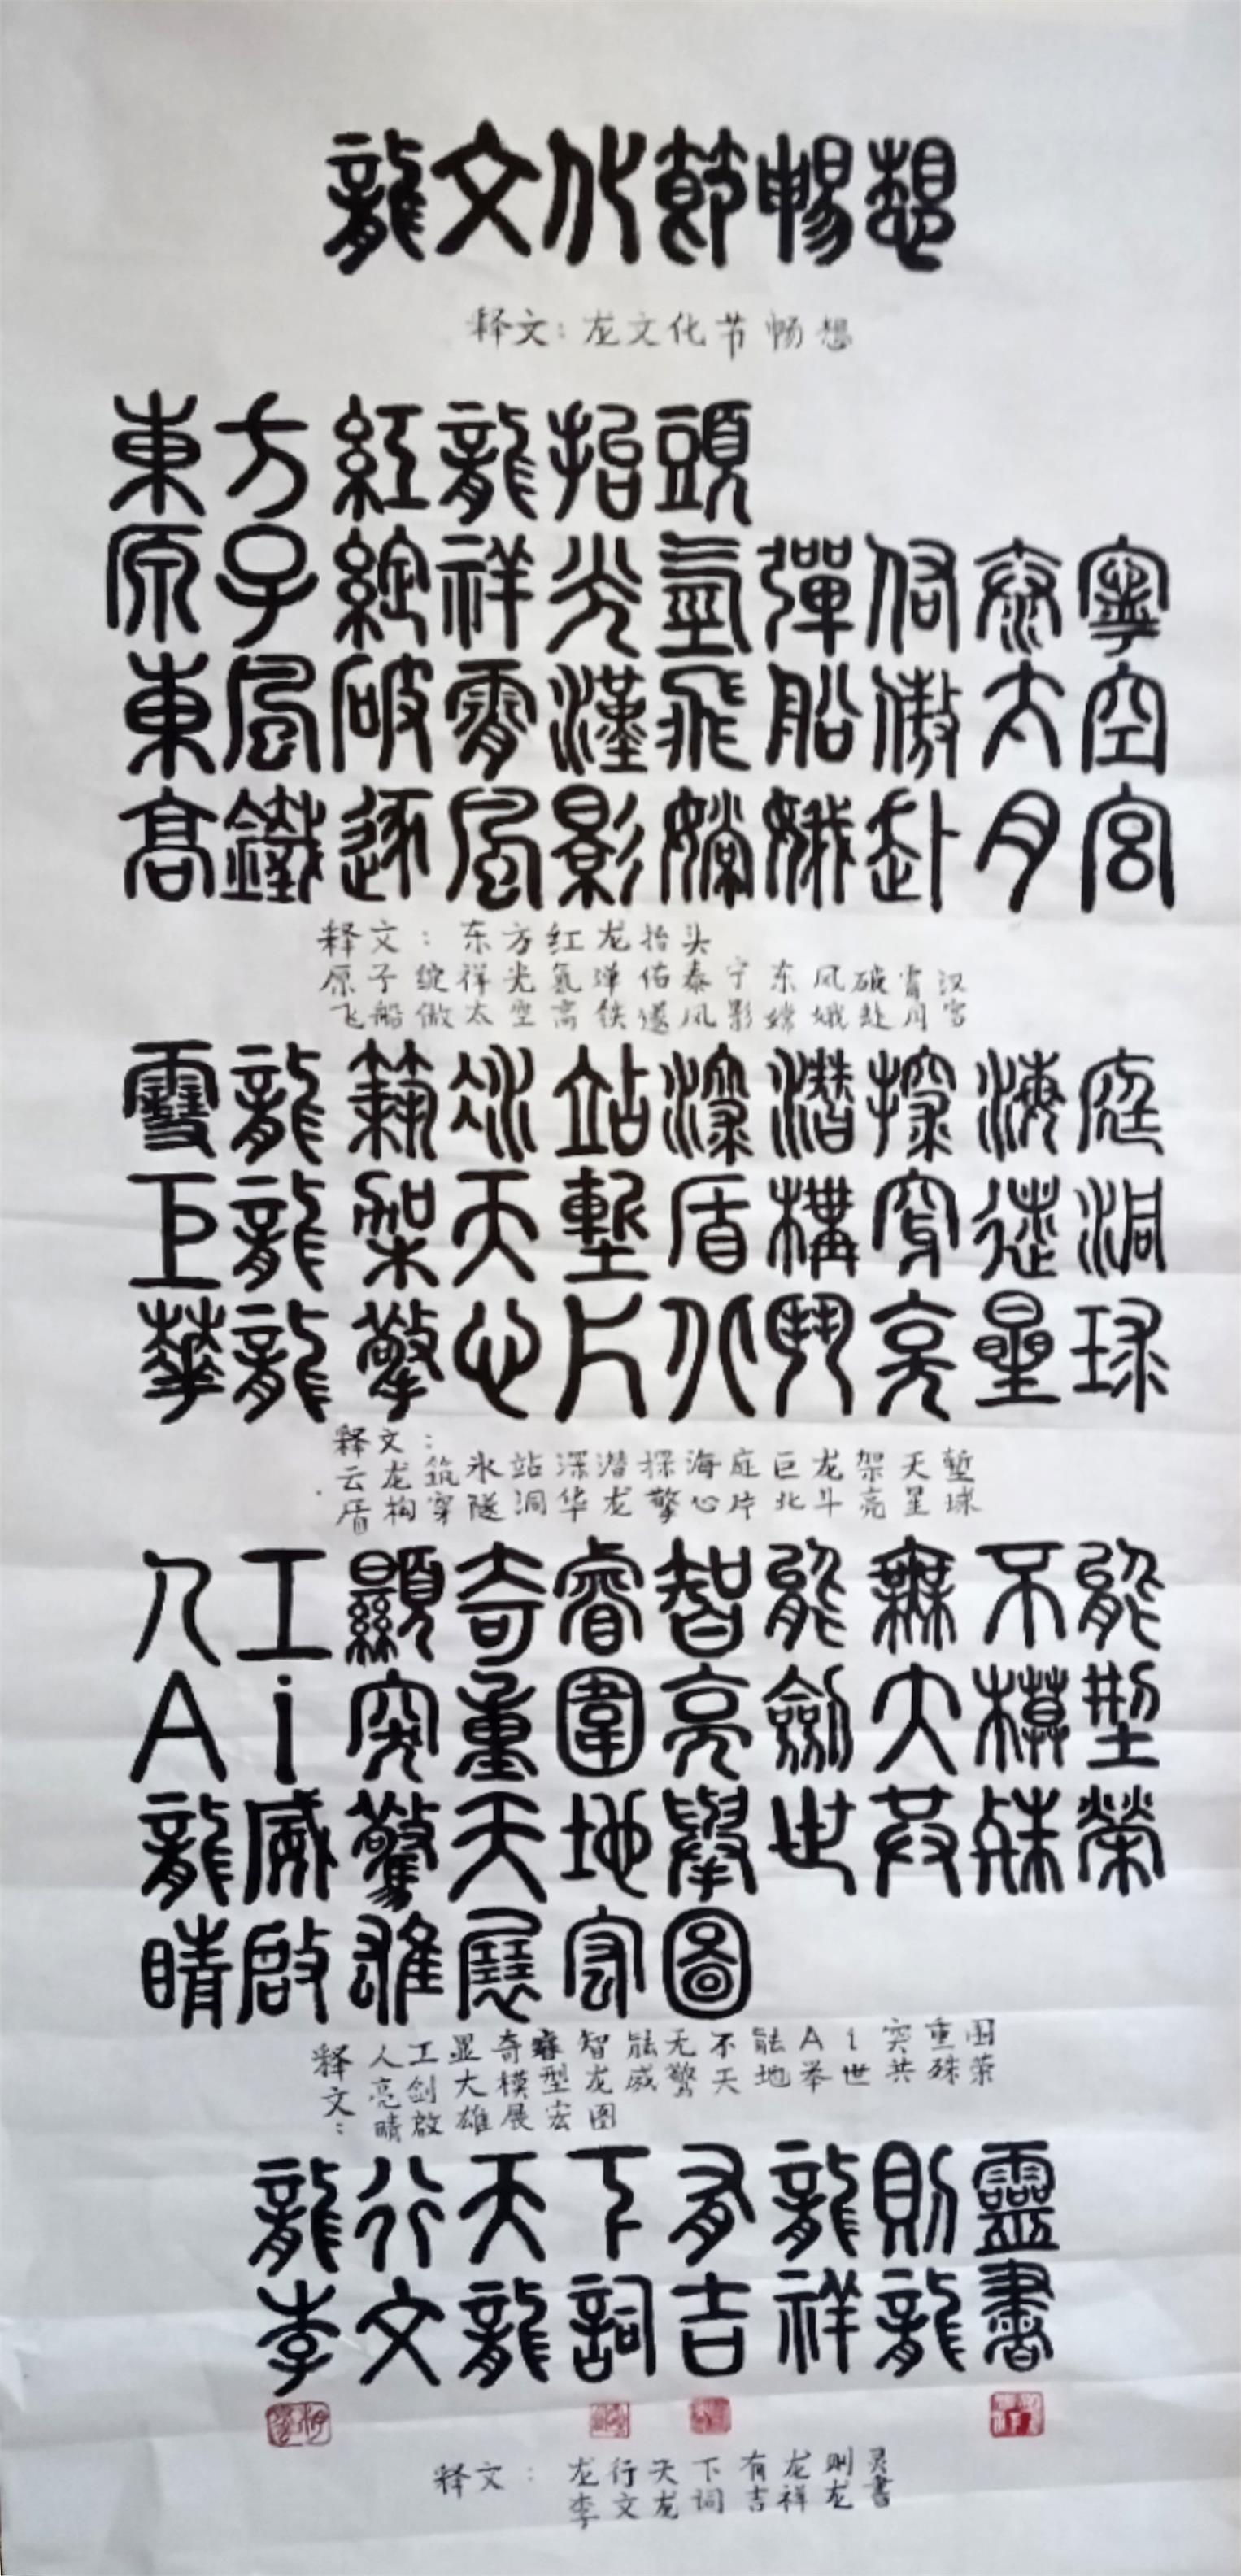 龍文化節暢想
释文：龙文化节畅想
東方紅龍抬頭
原子綻祥光氫彈佑泰寧
東風破霄漢飛船傲太空
高鐵逐風影嫦娥赴月宮
释文：东方红龙抬头
原子绽祥光氢弹佑泰宁东风破霄汉
飞船傲太空高铁逐风影嫦娥赴月宫
雲龍築冰站深潛探海庭
巨龍架天塹盾構穿隧洞
華龍擎心片北鬥亮星球
释文：
云龙筑冰站深潜探海庭巨龙架天堑
盾构穿隧洞华龙擎心片北斗亮星球
人工顯奇睿智能無不能
Ai突重圍亮劍大模型
龍威驚天地舉世共殊榮
睛啟雄展宏圖
释文：
人工显奇睿智能无不能Ai突重围
亮剑大模型龙威警天地举世共殊荣
睛啟雄展宏图
龍行天下有龍則靈
李文龍詞吉祥龍書
释文：龙行天下有龙则灵
李文龙词吉祥龙書